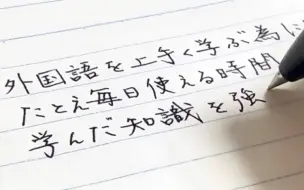 外国語を上手く学ぶ為に
たとえ毎日使える時間
学んだ知識を強